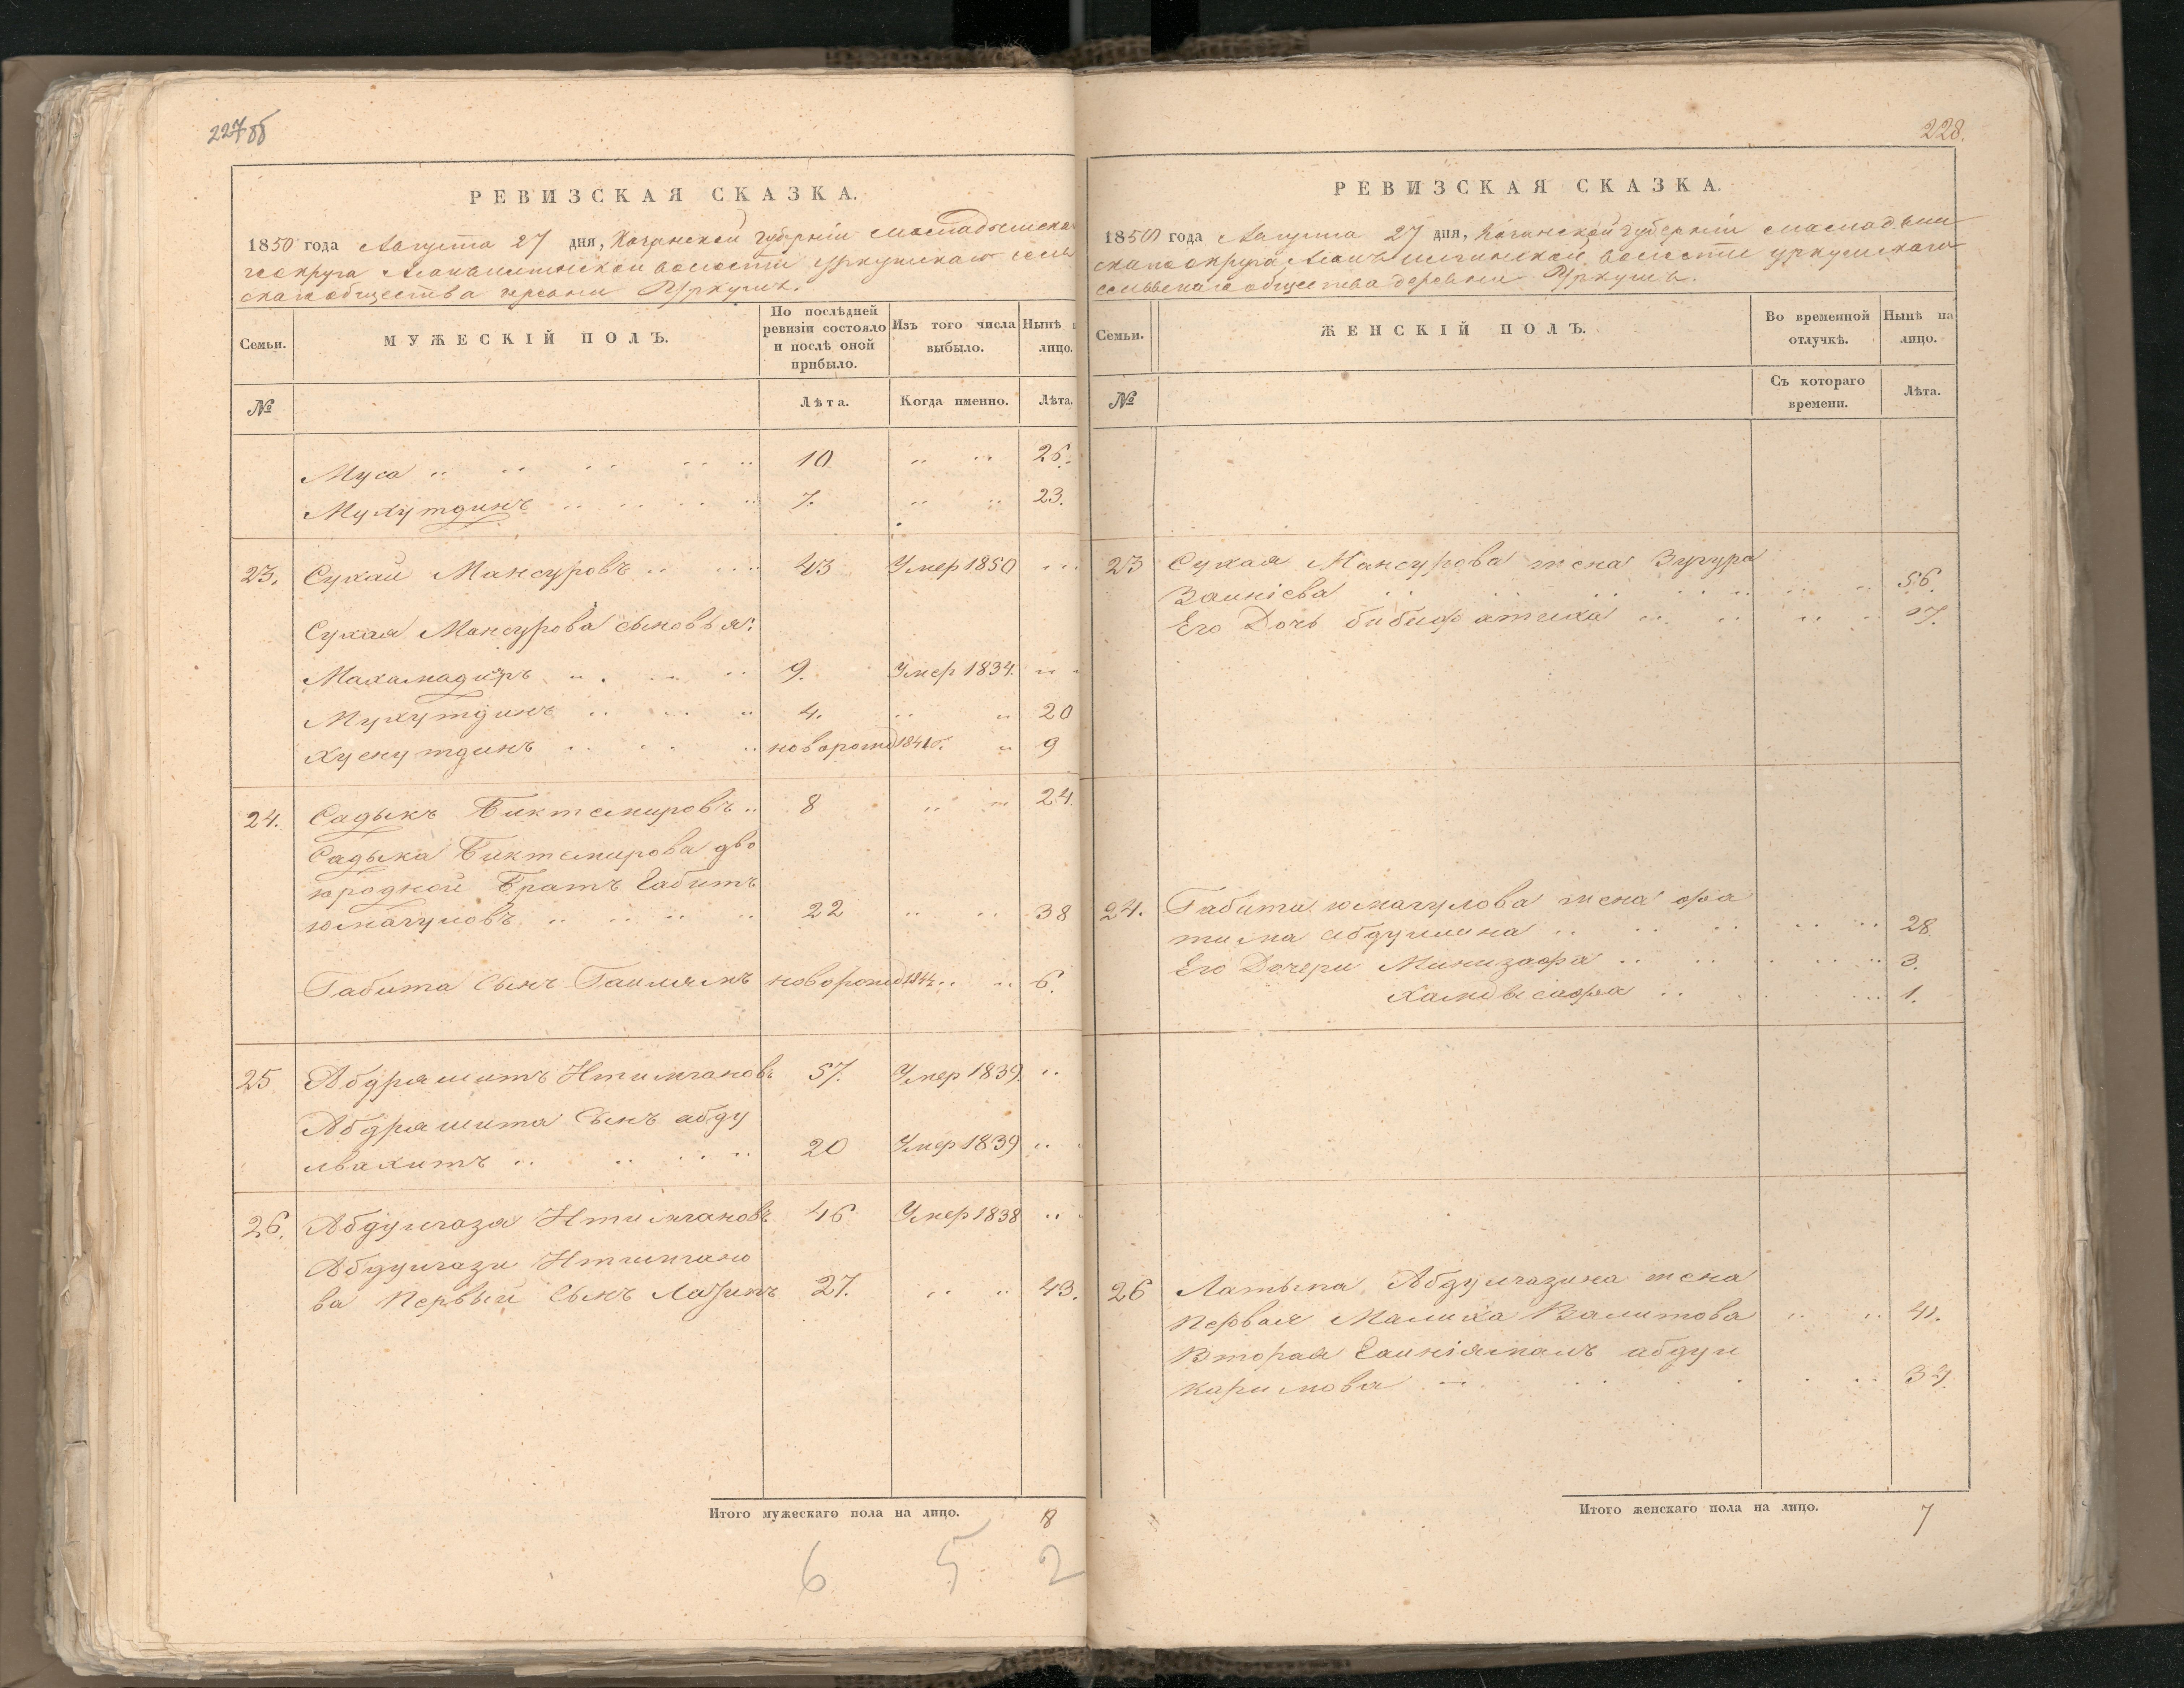 227 об
РЕВИЗСКАЯ СКАЗКА.
1850 года Августа 27 дня, Казанской губерніи Мамадышска
го округа волости Уркушскаго сель
скаго общества деревни Уркушъ.
Семьи.
МУЖЕСКІЙ ПОЛЪ.
По послѣдней ревизіи состояло и послѣ оной прибыло.
Изъ того числа выбыло.
Нынѣ
лицо.
№
Лѣта.
Когда именно.
Лѣта.
Муса 10 26.
Мухутдинъ 7. 23.
23. Сукай Мансуровъ 43 Умер 1850
Сукая Мансурова сыновья:
Махамадиръ 9. Умер 1834.
Мухутдинъ 4. 20
Хуснутдинъ новорожд 1841г. 9
24. Садыкъ Биктемировъ 8 24.
Садыка Биктемирова дво
юродной Братъ Габитъ
юмагуловъ 22 38
Габита Сынъ новорожд 1844 6.
25 Абдрашитъ Итимгановъ 57. Умер 1839.
Абдрашита Сынъ абду
лвахитъ 20 Умер 1839
26. Абдулгаза Итимгановъ 46 Умер 1838
Абдулгази Итимгано
ва Первый Сынъ 27. 43.
Итого мужескаго пола на лицо. 8
6 5 2
228.
РЕВИЗСКАЯ СКАЗКА.
1850 года Августа 27 дня, Казанской губерніи Мамадыш
скаго округа, волости Уркушскаго
сельскаго общества деревни Уркушъ.
Семьи.
ЖЕНСКІЙ ПОЛЪ.
Во временной отлучкѣ.
Нынѣ на лицо.
№
Съ котораго времени.
Лѣта.
23 Сукая Мансурова жена Зугура
Заикіева 56.
Его Дочь бибифатиха 17.
24. Габита юмагулова жена фа
тима абдуллина 28.
Его Дочери Минизафа 3.
1.
26 Латыпа Абдулгазина жена
Первая Малиха Валитова 41.
Вторая абдул
каримова
Итого женскаго пола на лицо. 7